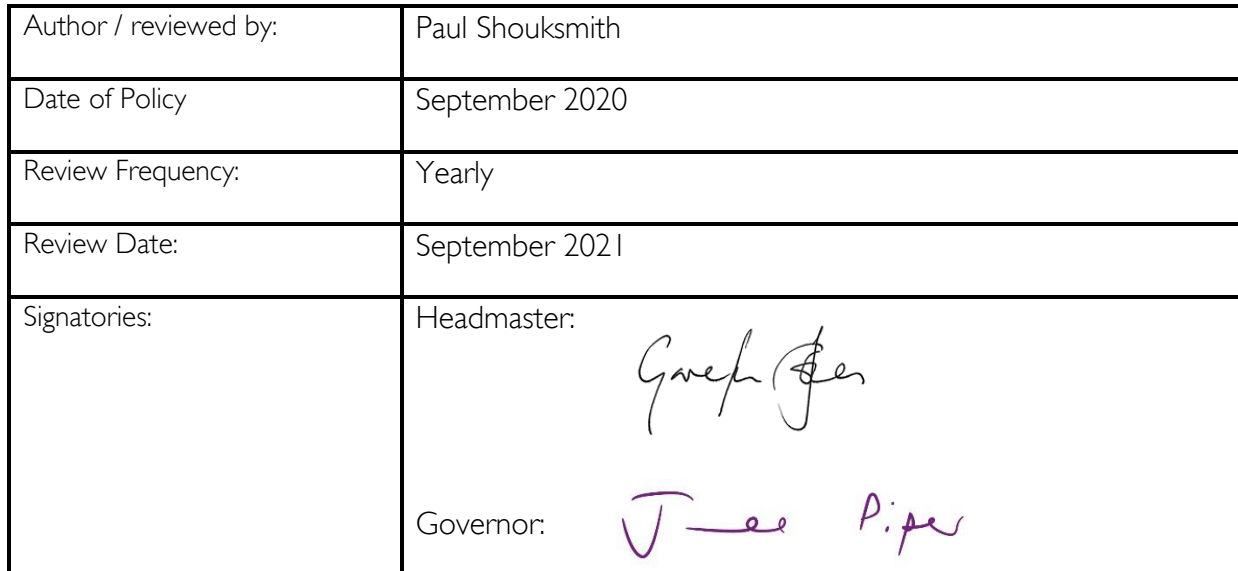 Author / reviewed by: Paul Shouksmith
Date of Policy September 2020
Review Frequency: Yearly
Review Date: September 2021
Signatories: Headmaster:
Governor: Piper